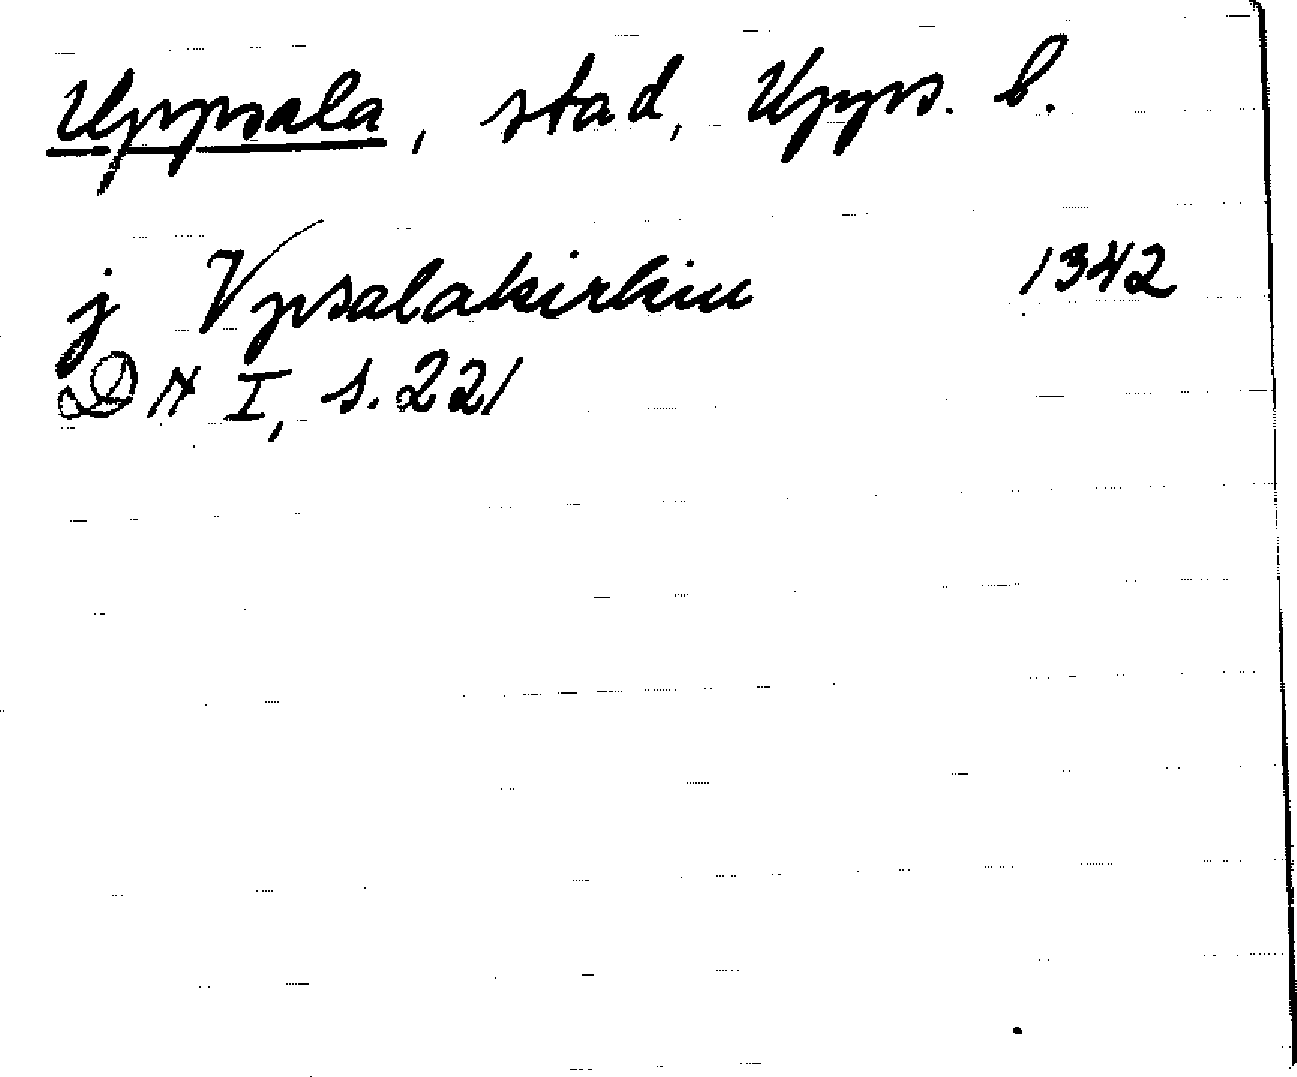 Uppsala, stad, Upps. l.
j Vpsalakirkiu 1342
DN I, s. 221